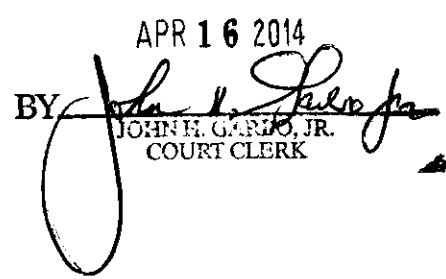 APR 16 2014
BY John H. Garbo Jr
JOHN H. GARBO, JR.
COURT CLERK